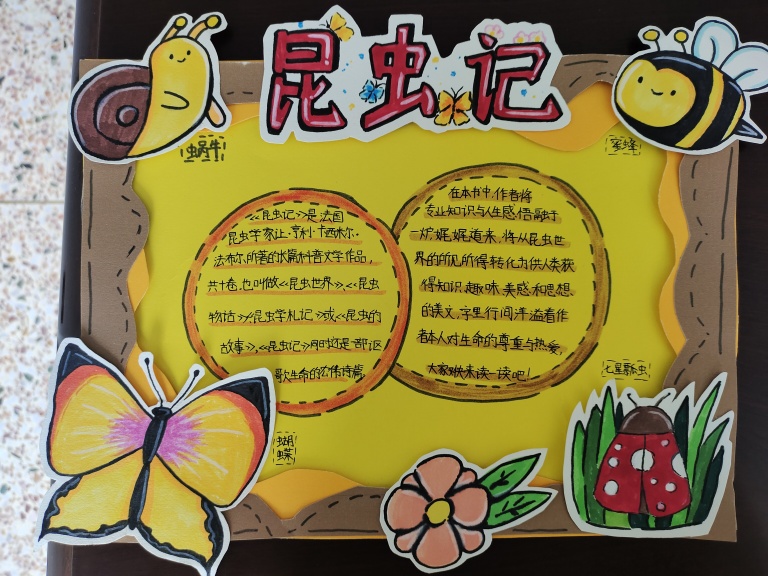 昆虫记
蜗牛
蜜蜂
《昆虫记》是法国
昆虫学家让·亨利·卡西米尔·
法布尔所著的长篇科普文学作品,
共十卷.也叫做《昆虫世界》,《昆虫
物语》,《昆虫学札记》或《昆虫的
故事》,《昆虫记》同时还是一部讴
歌生命的宏伟诗篇.
在本书中,作者将
专业知识与人生感悟融于
一炉,娓娓道来,将从昆虫世
界的所见所得转化为供人类获
得知识,趣味,美感和思想
的美文,字里行间洋溢着作
者本人对生命的尊重与热爱.
大家快来读一读吧!
七星瓢虫
蝴
蝶